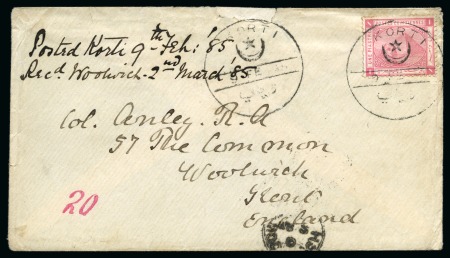 Posted Korti 9th Feb: '85
Recd. Woolwich 2nd March '85
KORTI
KORTI
Col. Anley. R.A
57 The Common
Woolwich
Kent
England
20